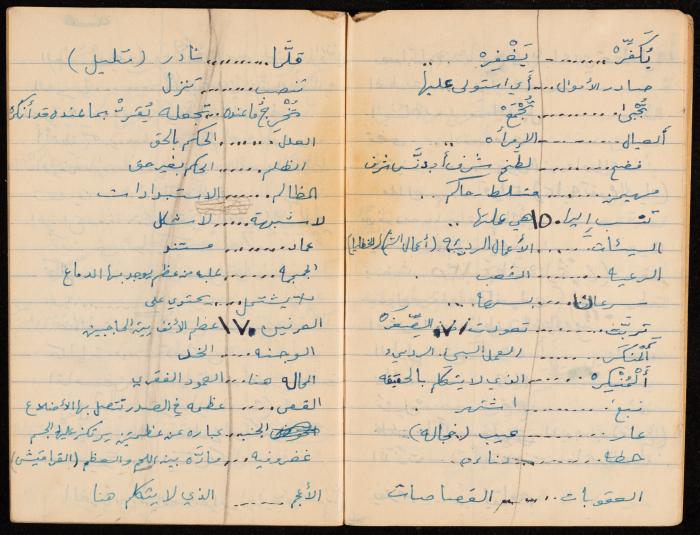 يُكَفِّرْ ........ يَغْفِرْ ..
صادر الأموال ... أي استولى عليها
تُجْبَى ....... تُجْمَعْ
العيال ........ الإمرأه ..
فضح ..... لطخ بشرف أو دنَّس شرف
مسيطر ..... متسلط حاكم ..
تنسب إليها .. هي عليها ..
السيئات ..... الأعمال الرديئه
الرعية ....... الشعب
سرعان ..... بسرعة ...
تربَّت ..... تحولت
المُنْكَر ..... العمل السيء
ألمُنْكِرْ ..... الذي لا يتكلم بالحقيقه
نبغ ....... اشتهر .
عار ....... عيب (خجاله)
خطة .......
العقوبات ...... القصاصات
قلَّما ........ نادر (قليل)
تنصب ...... تنزل
تُخْرِجُ ما عنده .. تجعله يُقِرُّ بما عنده قد أنكره
العدل ...... الحكم بالحق
الظلم .... الحكم بغير حق
المظالم ..... الاستبدادات
لا شبهة .... لا شكل
عماد ....... مستند
الجمجمة ..... علبه من عظم يوجد بها الدماغ
يشتمل ... يحتوي على
العرنين ١٧٠ عظم الأنف بين الحاجبين
الوجنه .... الخد
المحاله هنا .. العمود الفقري
القص ..... عظمه في الصدر تتصل بها الأضلاع
الجنب .. عباره عن عظمتين يرتكز عليها الجسم
غضروفيه ... مادَّة بين اللحم والعظم
الأعجم ...... الذي لا يتكلم هنا